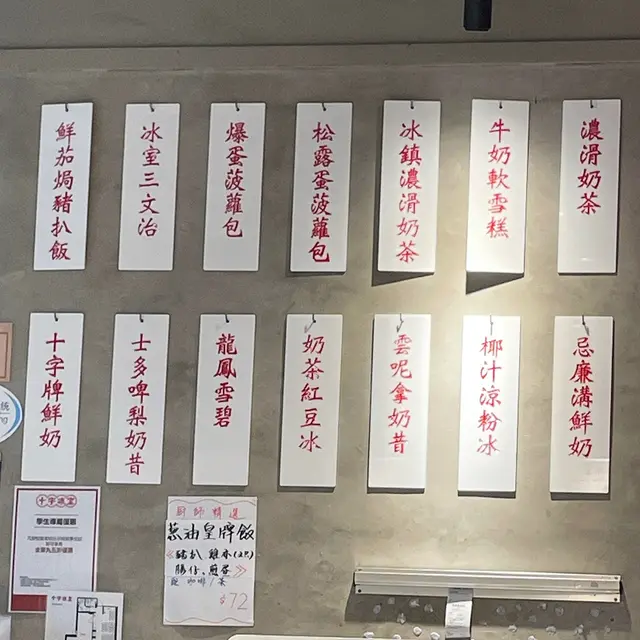 鮮茄焗豬扒飯
冰室三文治
爆蛋菠蘿包
松露蛋菠蘿包
冰鎮濃滑奶茶
牛奶軟雪糕
濃滑奶茶
十字牌鮮奶
士多啤梨奶昔
龍鳳雪碧
奶茶紅豆冰
雲呢拿奶昔
椰汁涼粉冰
忌廉溝鮮奶
十字冰室
學生專屬優惠
廚師精選
蔥油皇牌飯
豬扒 雞亦(2只)
腸仔、煎蛋
配 咖啡/茶
$72
十字冰室